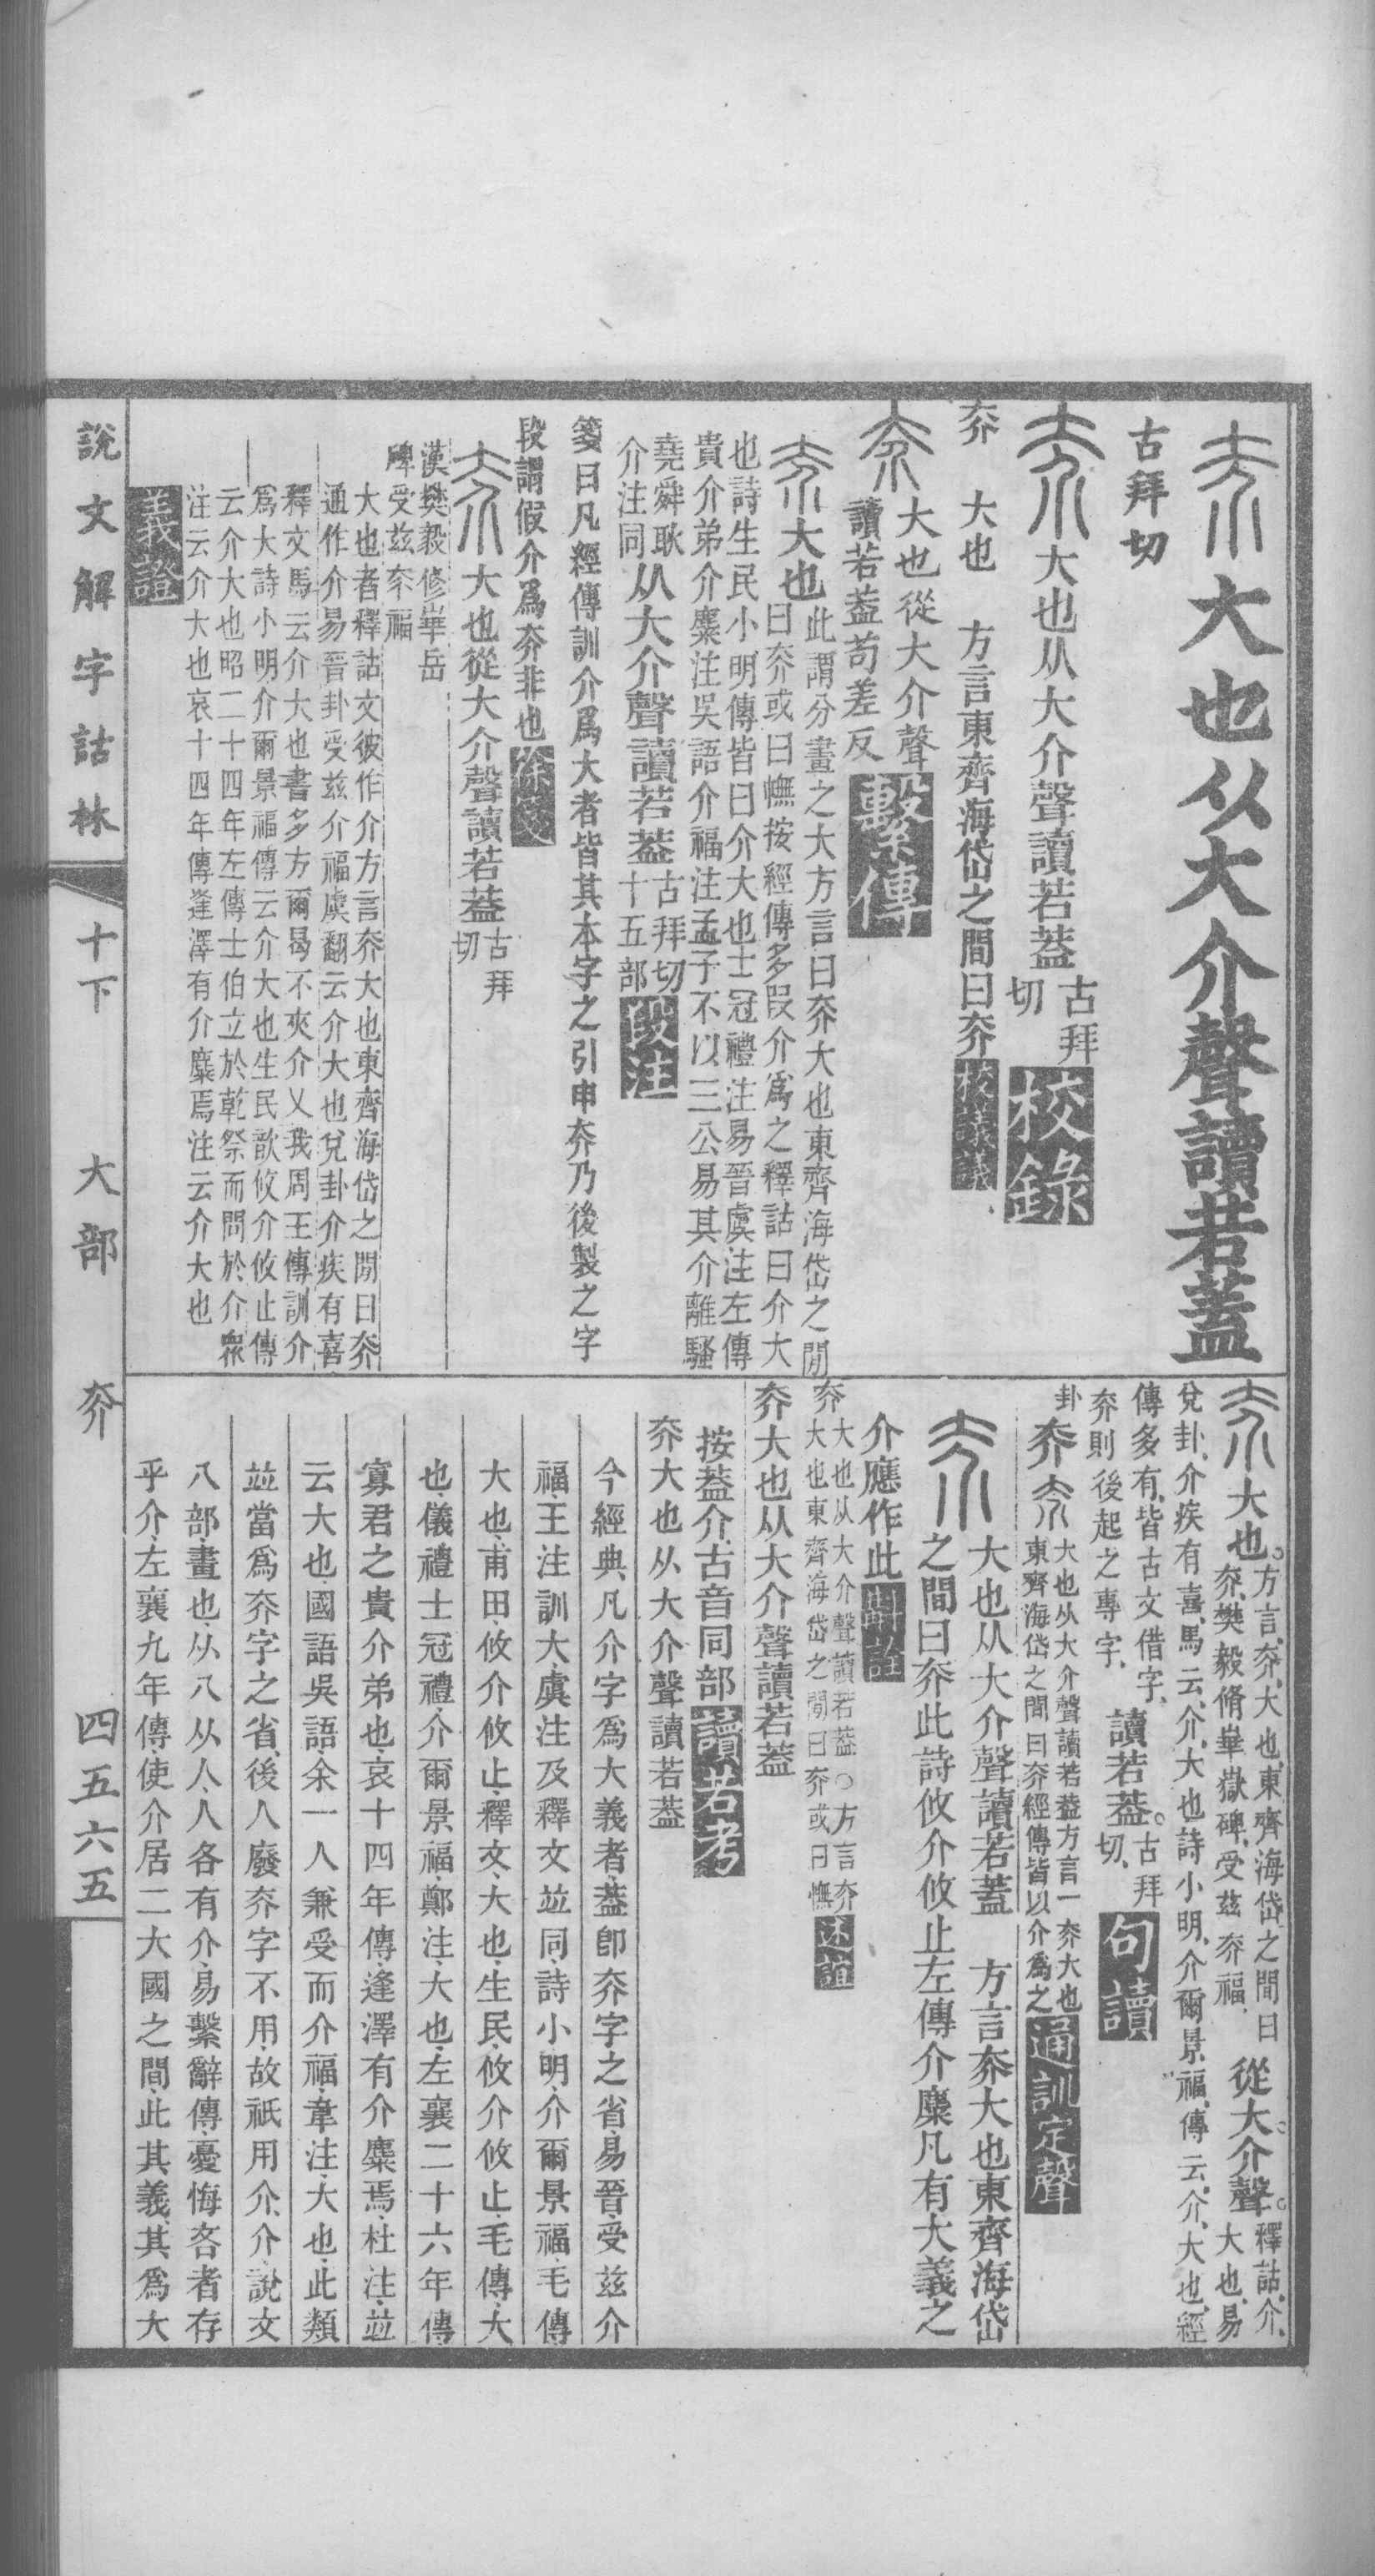 大也从大介聲讀若蓋
古拜切
大也从大介聲讀若葢古拜切 校錄
夰 大也 方言東齊海岱之間曰夰 校錄議
大也從大介聲
讀若葢苟差反 繫傳
大也此謂分畫之大方言曰夰大也東齊海岱之閒曰夰或曰幠按經傳多叚介爲之釋詁曰介大
也詩生民小明傳皆曰介大也士冠禮注易晉虞注左傳貴介弟介麋注吳語介福注孟子不以三公易其介離騷
堯舜耿介注同从大介聲讀若葢古拜切十五部 段注
箋曰凡經傳訓介爲大者皆其本字之引申夰乃後製之字
段謂假介爲夰非也 徐箋
大也從大介聲讀若葢古拜切
漢樊毅修華岳碑受兹夰福
大也者釋詁文彼作介方言夰大也東齊海岱之閒曰夰
通作介易晉卦受兹介福虞翻云介大也兌卦介疾有喜
釋文馬云介大也書多方爾曷不夾介乂我周王傳訓介
爲大詩小明介爾景福傳云介大也生民歆攸介攸止傳
云介大也昭二十四年左傳士伯立於乾祭而問於介衆
注云介大也哀十四年傳逢澤有介麋焉注云介大也
義證
說文解字詁林 十下 大部 夰 四五六五
大也。方言、夰、大也、東齊海岱之間曰夰、樊毅脩華嶽碑、受兹夰福、從大介聲。釋詁、介、大也、易
兌卦、介疾有喜、馬云、介、大也詩小明、介爾景福、傳云、介、大也、經
傳多有、皆古文借字、夰則後起之專字、讀若葢。古拜切、句讀
卦夰 大也从大介聲讀若葢方言一夰大也東齊海岱之間曰夰經傳皆以介爲之 通訓定聲
大也从大介聲讀若蓋 方言夰大也東齊海岱
之間曰夰此詩攸介攸止左傳介麋凡有大義之
介應作此 斠詮
夰大也从大介聲讀若葢○方言夰
夰大也東齊海岱之閒曰夰或曰幠 述誼
夰大也从大介聲讀若葢
按葢介古音同部 讀若考
夰大也从大介聲讀若葢
今經典凡介字爲大義者葢卽夰字之省易晉受兹介
福王注訓大虞注及釋文並同詩小明介爾景福毛傳
大也甫田攸介攸止釋文大也生民攸介攸止毛傳大
也儀禮士冠禮介爾景福鄭注大也左襄二十六年傳
寡君之貴介弟也哀十四年傳逢澤有介麋焉杜注並
云大也國語吳語余一人兼受而介福韋注大也此類
並當爲夰字之省後人廢夰字不用故祇用介介說文
八部畫也从八从人人各有介易繫辭傳憂悔吝者存
乎介左襄九年傳使介居二大國之間此其義其爲大